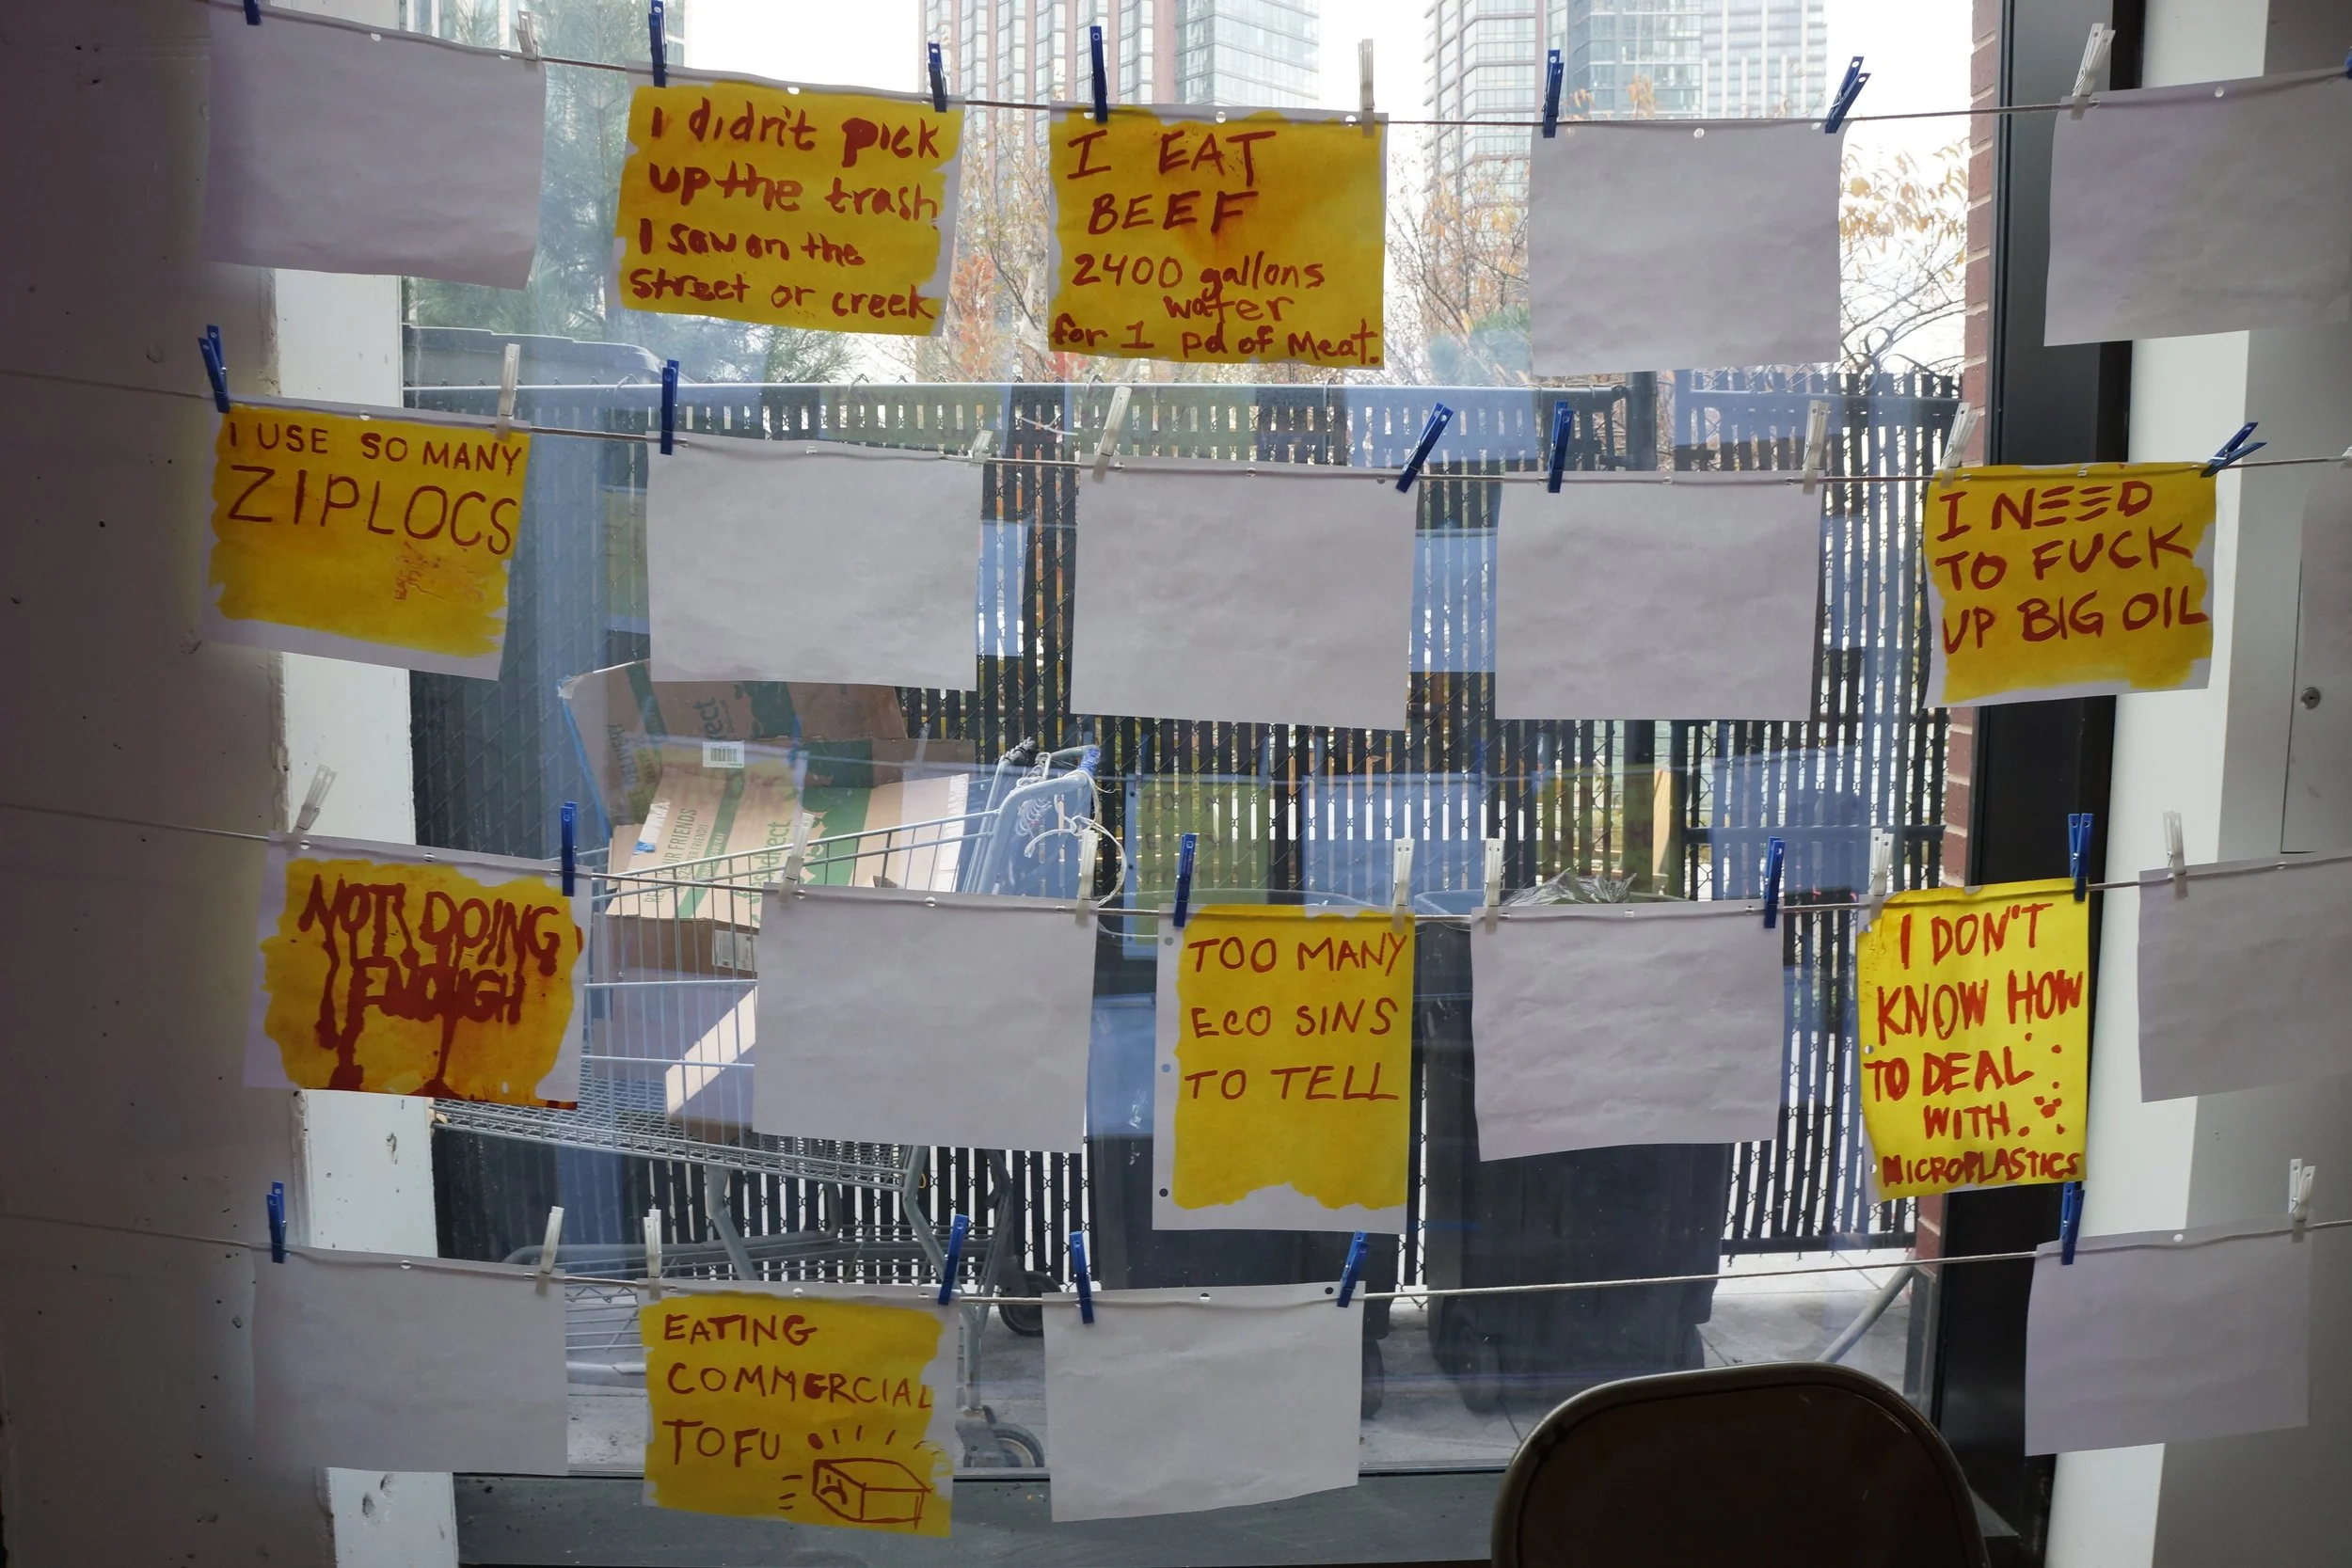 I didn't pick
up the trash
I saw on the
street or creek
I EAT
BEEF
2400 gallons
water
for 1 pd of Meat.
I USE SO MANY
ZIPLOCS
I NEED
TO FUCK
UP BIG OIL
NOT DOING
ENOUGH
TOO MANY
ECO SINS
TO TELL
I DON'T
KNOW HOW
TO DEAL
WITH
MICROPLASTICS
EATING
COMMERCIAL
TOFU